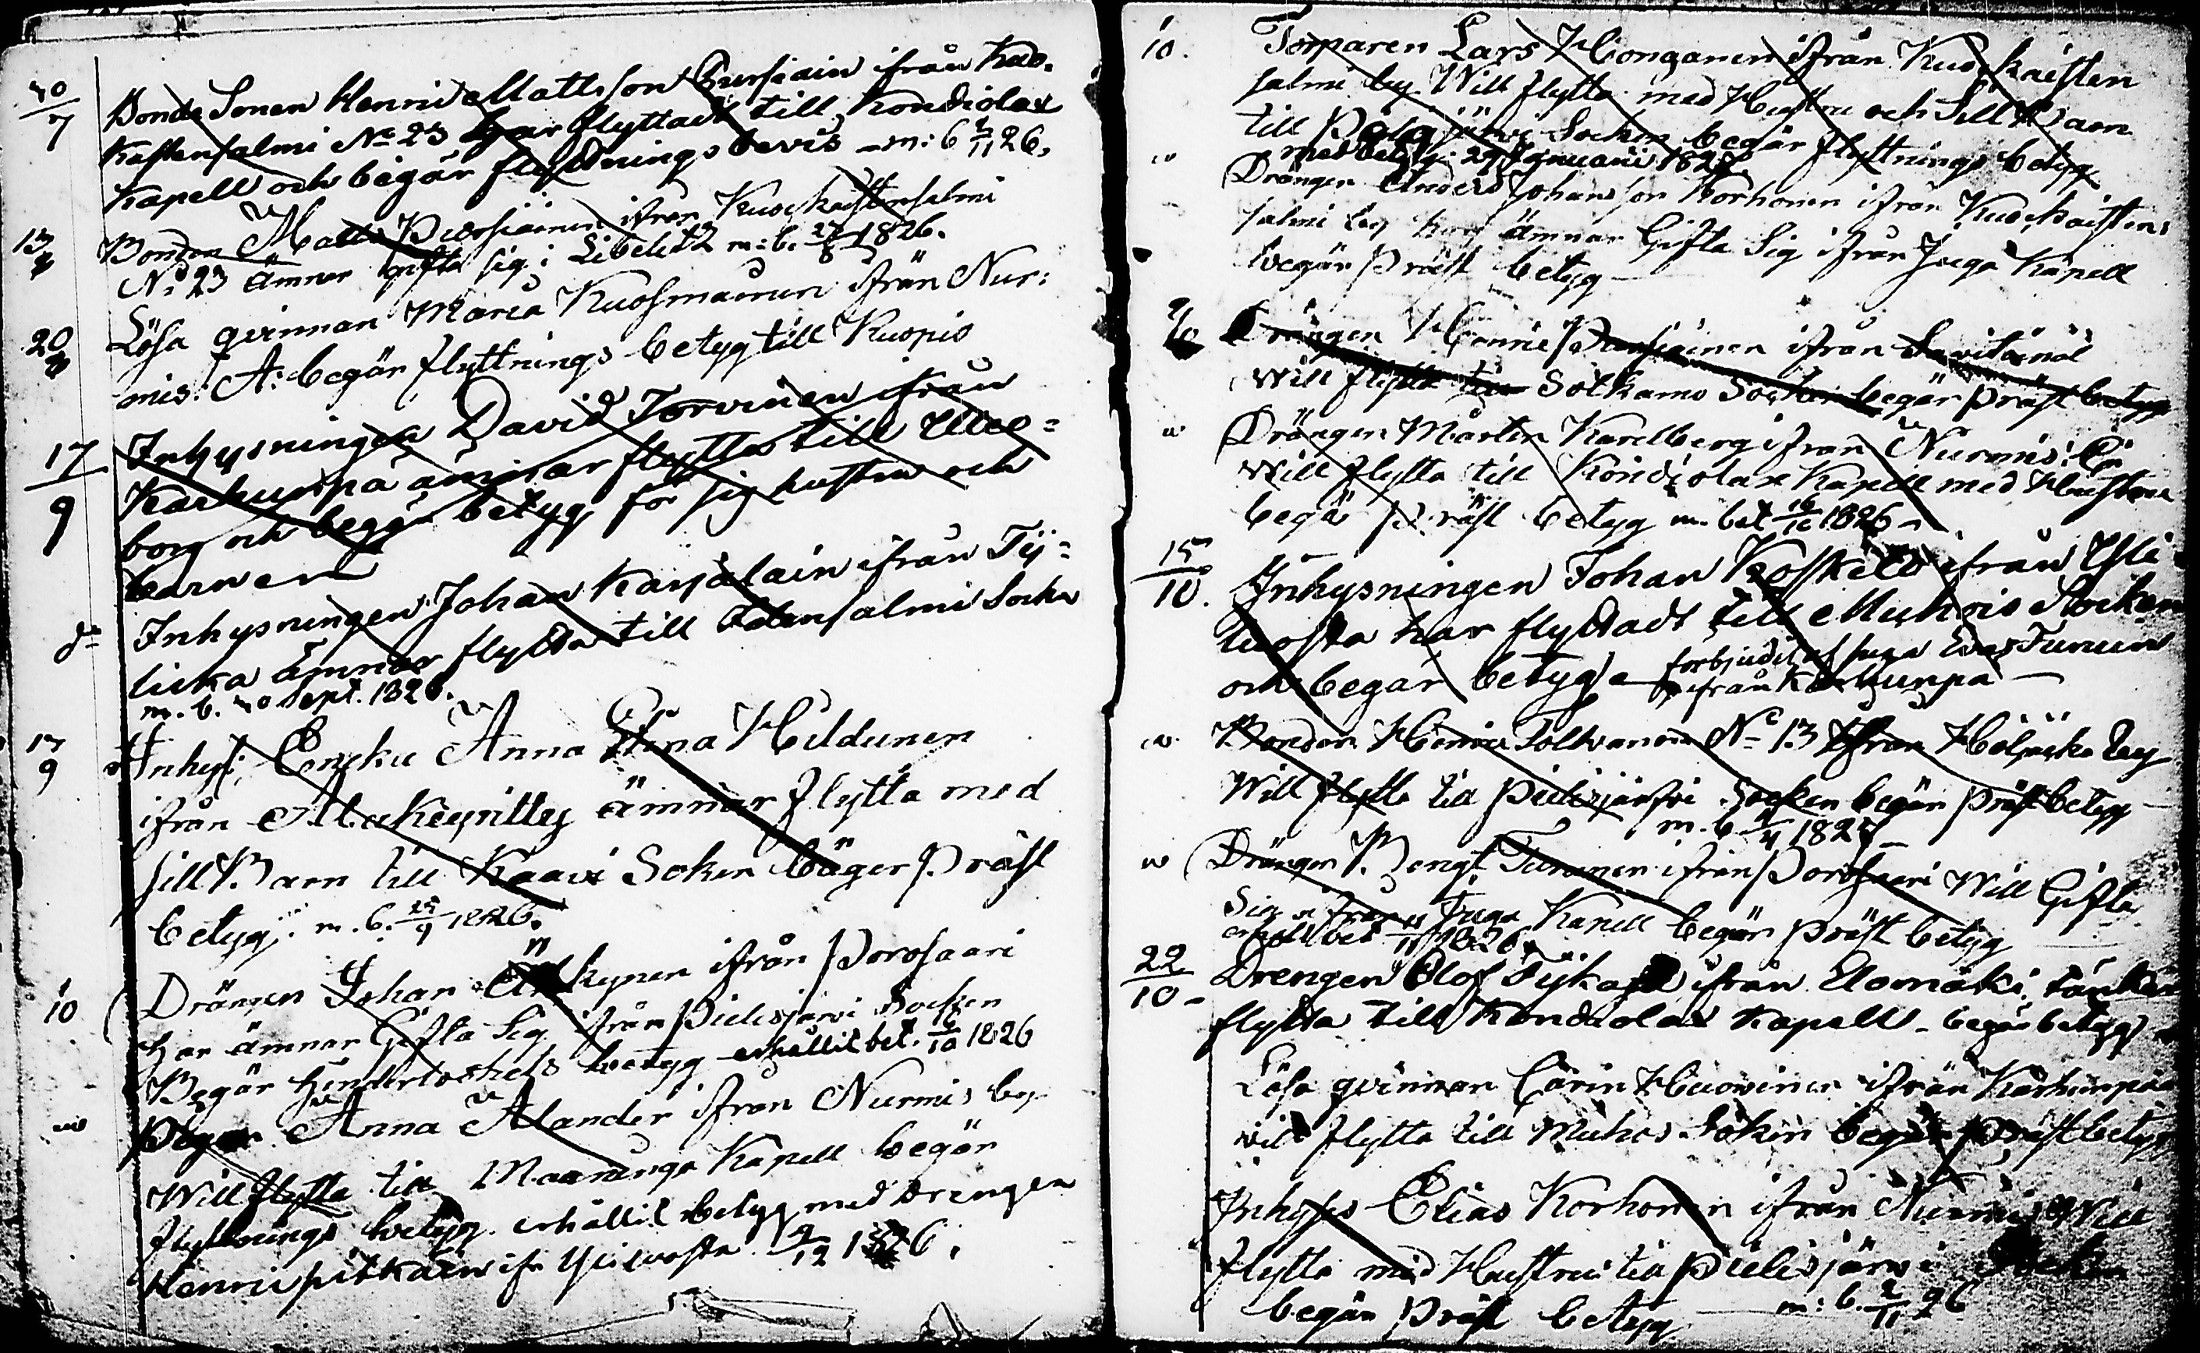 30/7 Bonde Sonen Henric Mattsson Pursiain ifrån Kuo-
kastensalmi No 23 har flyttadt till Kondiolax
Kapell och begär flyttnings bevis - m: b 6/11 26.
13 Bonden Matts Pursiainen ifrån Kuockastensalmi
No 23 ämnar gifta sig i Libelitz m: b. 27/8 1826.
20 Lösa qvinnan Maria Kuosmainen ifrån Nur:
mis: A: begär flyttnings betyg till Kuopio
17/9 Inhysningen David Torvinen ifrån
Karhunpä ämnar flytta till Uleo=
borg och begär betyg för sig hustru och
barnen
do Inhysningen Johan Karjalain ifrån Tij=
licka ämnar flytta till Idensalmi Sockn
m. b. 30 Sept. 1826.
17/9 Inhys: Encka Anna Elina Hildunen
ifrån Alakeyritty ämnar flytta med
sill Barn till Kaavi Soken bäger Präst
betyg: m. b. 25/9 1826.
1/10 Drängen Johan kynen ifrån Porosaari
Har ämnar Gifta Sig ifrån Pielisjärvi Socken
Begär Hinderlöshets betyg erhållit bet. 16/10 1826
Pigan Anna Alander ifrån Nurmis by
Will flytta till Maaninga Kapell begär
flyttnings betyg erhållit betyg med drengen
Henric pitkäin ifr Ylivosta 9/12 1826.
10. Torparen Lars Honganen ifrån Kuockaisten
salmi by Will flytta med Hustru och Sill Barn
till Pälgjärvi Socken begär flyttnings betyg
met betyg: 29 Januarii 1827
Drängen Anders Johansson Korhonen ifrån Kuockaistens
salmi by ämnar Gifta Sig ifrån Juga Kapell
begär Präst betyg
Drängen Henric Pursiainen ifrån
Will flytta till Sotkamo Socken begär Präst betyg
Drängen Mårten Karelberg ifrån Nurmis: By
Will flytta till Kondiolax Kapell med Hustru
begä Präst betyg m. bet 16/10 1826
15/10. Inhysningen Johan Koskelo ifrån Yli
tuosta har flyttadt till Muhois Socken
och begär betyg förbjudit af piga Eva Turunen
ifrån Karhunpä
Bonden Henric Tolvanen No 13 ifrån Höljäckä by
Will flytta till Pielisjärfvi Socken begär Präst betyg
m. b 1827
Drängen Bengt Turunen ifrån Porosaari Will Gifta
Sig ifrån Juga Kapell begär präst betyg
erhållit bet 11/11 1826
22/10 - Drengen Olof Tykä ifrån Elomäki tänker
flytta till Kondiolax Kapell - begär betyg
Lösa qvinnan Carin Huovinen ifrån Karhunpää
will flytta till Muhos Soken begär Präst betyg
Inhyses Elias Korhonen ifrån Nurmis Will
flytta med Hustru till Pielisjärvi Socken
begär Präst betyg m: b. 2/11 26